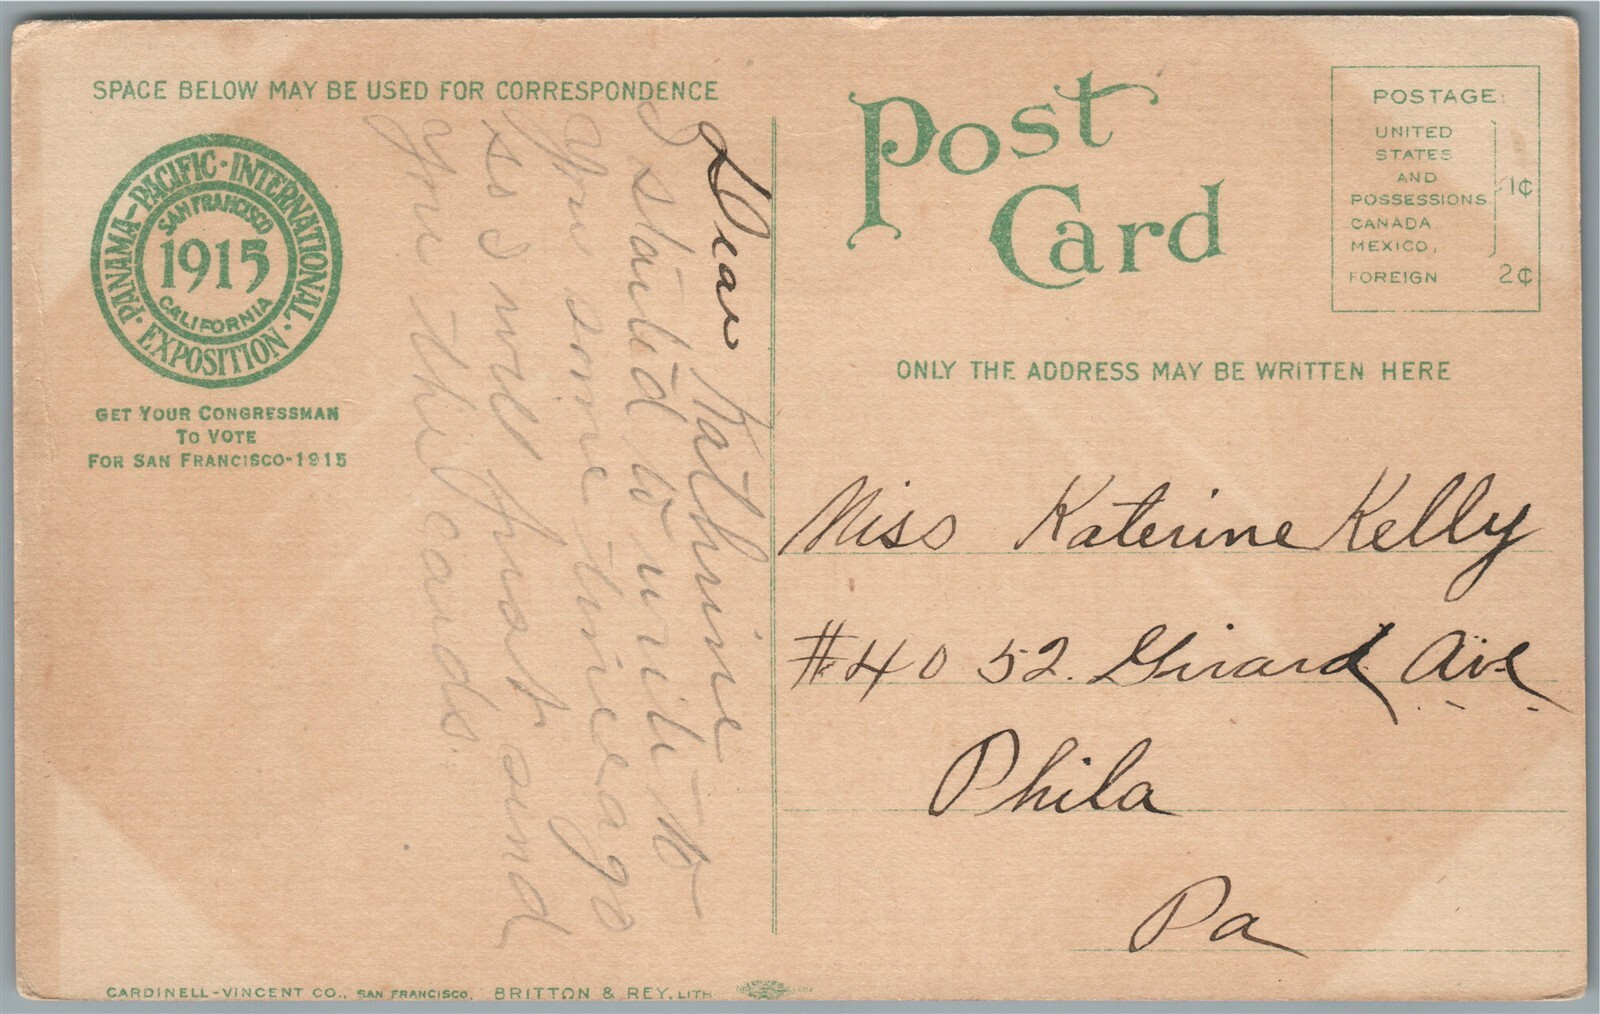 SPACE BELOW MAY BE USED FOR CORRESPONDENCE
PANAMA-PACIFIC · INTERNATIONAL · EXPOSITION ·
SAN FRANCISCO
1915
CALIFORNIA
GET YOUR CONGRESSMAN
TO VOTE
FOR SAN FRANCISCO-1915
Dear Kathrine
I started to write to
you some time ago
so I will just send
you the cards.
Post
Card
POSTAGE
UNITED
STATES
AND
POSSESSIONS
CANADA
MEXICO,
1¢
FOREIGN 2¢
ONLY THE ADDRESS MAY BE WRITTEN HERE
Miss Katerine Kelly
#4052. Girard Ave
Phila
Pa
CARDINELL-VINCENT CO., SAN FRANCISCO, BRITTON & REY, LITH